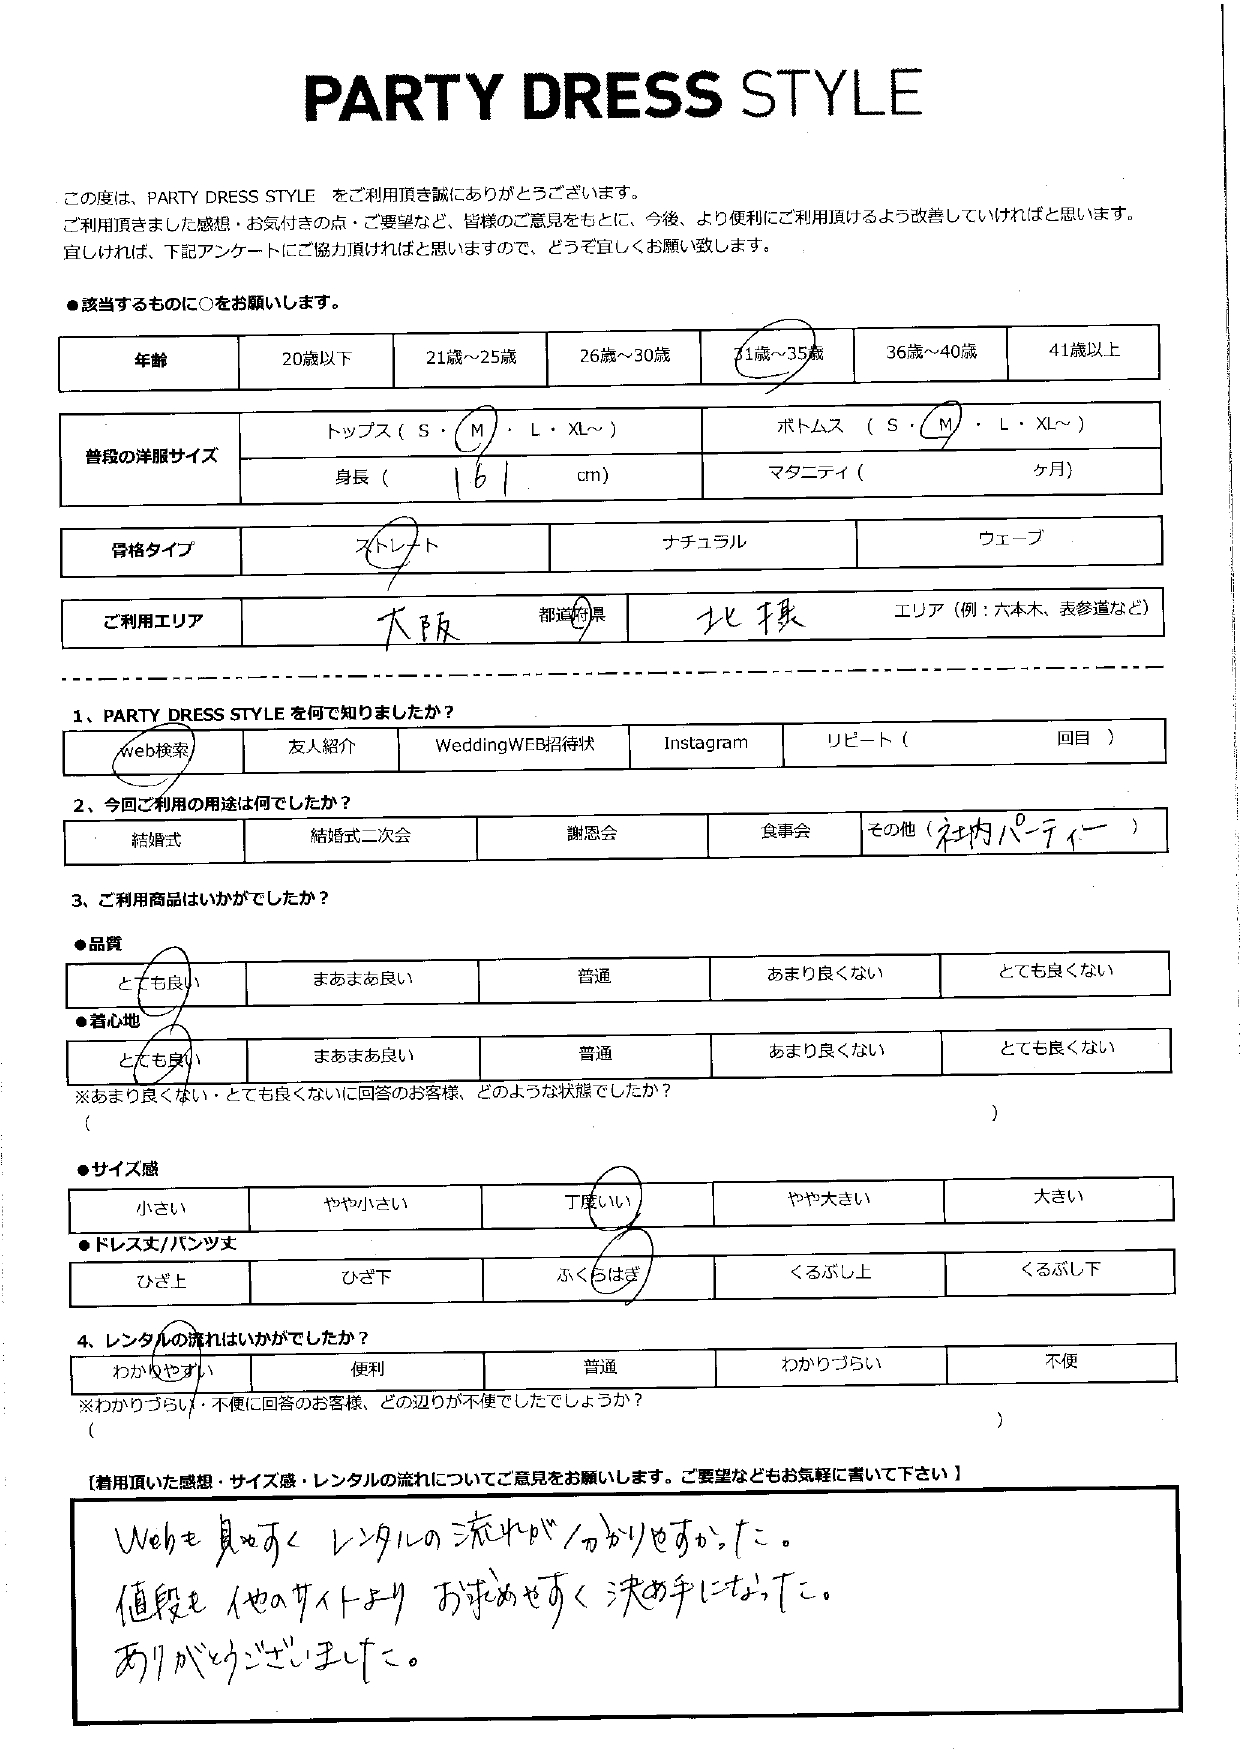 PARTY DRESS STYLE
この度は、PARTY DRESS STYLE をご利用頂き誠にありがとうございます。
ご利用頂きました感想・お気付きの点・ご要望など、皆様のご意見をもとに、今後、より便利にご利用頂けるよう改善していければと思います。
宜しければ、下記アンケートにご協力頂ければと思いますので、どうぞ宜しくお願い致します。
●該当するものに○をお願いします。
年齢 20歳以下 21歳～25歳 26歳～30歳 31歳～35歳 36歳～40歳 41歳以上
普段の洋服サイズ トップス ( S ・ M ・ L ・ XL～ ) ボトムス ( S ・ M ・ L ・ XL～ )
身長 ( 161 cm) マタニティ ( ヶ月)
骨格タイプ ストレート ナチュラル ウェーブ
ご利用エリア 大阪 都道府県 北摂 エリア（例：六本木、表参道など）
1、PARTY DRESS STYLE を何で知りましたか？
web検索 友人紹介 WeddingWEB招待状 Instagram リピート ( 回目 )
2、今回ご利用の用途は何でしたか？
結婚式 結婚式二次会 謝恩会 食事会 その他 ( 社内パーティー )
3、ご利用商品はいかがでしたか？
●品質
とても良い まあまあ良い 普通 あまり良くない とても良くない
●着心地
とても良い まあまあ良い 普通 あまり良くない とても良くない
※あまり良くない・とても良くないに回答のお客様、どのような状態でしたか？
( )
●サイズ感
小さい やや小さい 丁度いい やや大きい 大きい
●ドレス丈/パンツ丈
ひざ上 ひざ下 ふくらはぎ くるぶし上 くるぶし下
4、レンタルの流れはいかがでしたか？
わかりやすい 便利 普通 わかりづらい 不便
※わかりづらい・不便に回答のお客様、どの辺りが不便でしたでしょうか？
( )
【着用頂いた感想・サイズ感・レンタルの流れについてご意見をお願いします。ご要望などもお気軽に書いて下さい】
Webも見やすく レンタルの流れが分かりやすかった。
値段も他のサイトより お求めやすく決め手になった。
ありがとうございました。